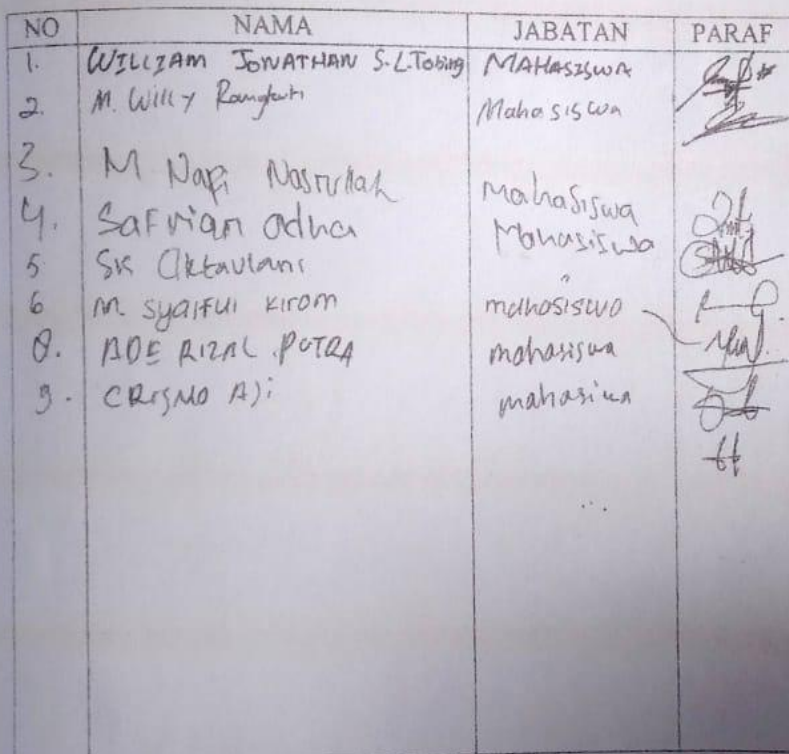 NO NAMA JABATAN PARAF
1. WILLIAM JONATHAN S.L.Tobing MAHASISWA
2. M. Willy Rangkuti Mahasiswa
3. M Napi Nasrullah Mahasiswa
4. Safrian adha Mahasiswa
5 SK Oktaviani "
6 M. Syaiful Kirom mahasiswa
8. ADE RIZAL PUTRA mahasiswa
9. CRISMO Aji mahasiwa